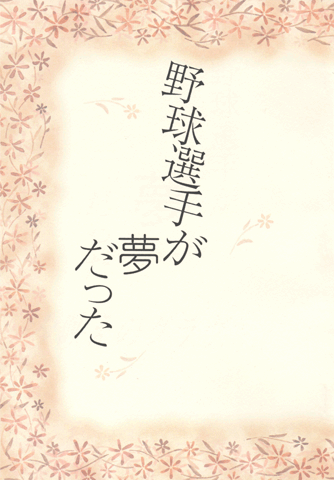 野球選手が
夢
だった